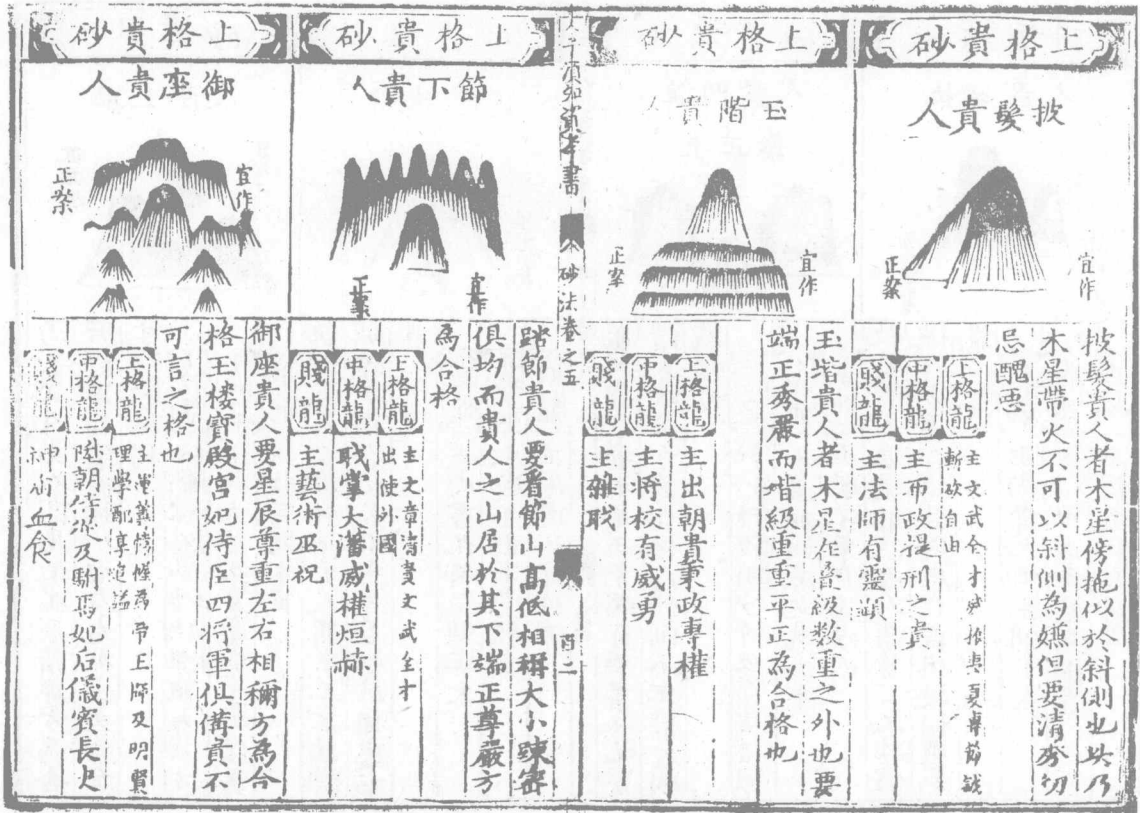 上格貴砂
披髮貴人
宜作
正案
披髮貴人者木星傍拖似於斜側也此乃
木星帶火不可以斜側為嫌但要清秀切
忌醜惡
上格龍
主文武全才 專節鉞
斬砍自由
中格龍
主布政提刑之貴
賤龍
主法師有靈顯
上格貴砂
玉階貴人
宜作
正案
玉堦貴人者木星在臺級数重之外也要
端正秀嚴而堦級重重平正為合格也
上格龍
主出朝貴秉政專權
中格龍
主將校有威勇
賤龍
主雜職
人子須知資孝書
砂法卷之五
酉二
上格貴砂
節下貴人
宜作
正案
踏節貴人要看節山高低相稱大小踈密
俱均而貴人之山居於其下端正尊嚴方
為合格
上格龍
主文章清貴文武全才
出使外國
中格龍
職掌大藩威權烜赫
賤龍
主藝術巫祝
上格貴砂
御座貴人
宜作
正案
御座貴人要星辰尊重左右相稱方為合
格玉楼寶殿宫妃侍臣四將軍俱俻貴不
可言之格也
上格龍
為帝王師及明賢
理學配享追謚
中格龍
陞朝侍從及駙馬妃后儀賓長久
賤龍
神術血食